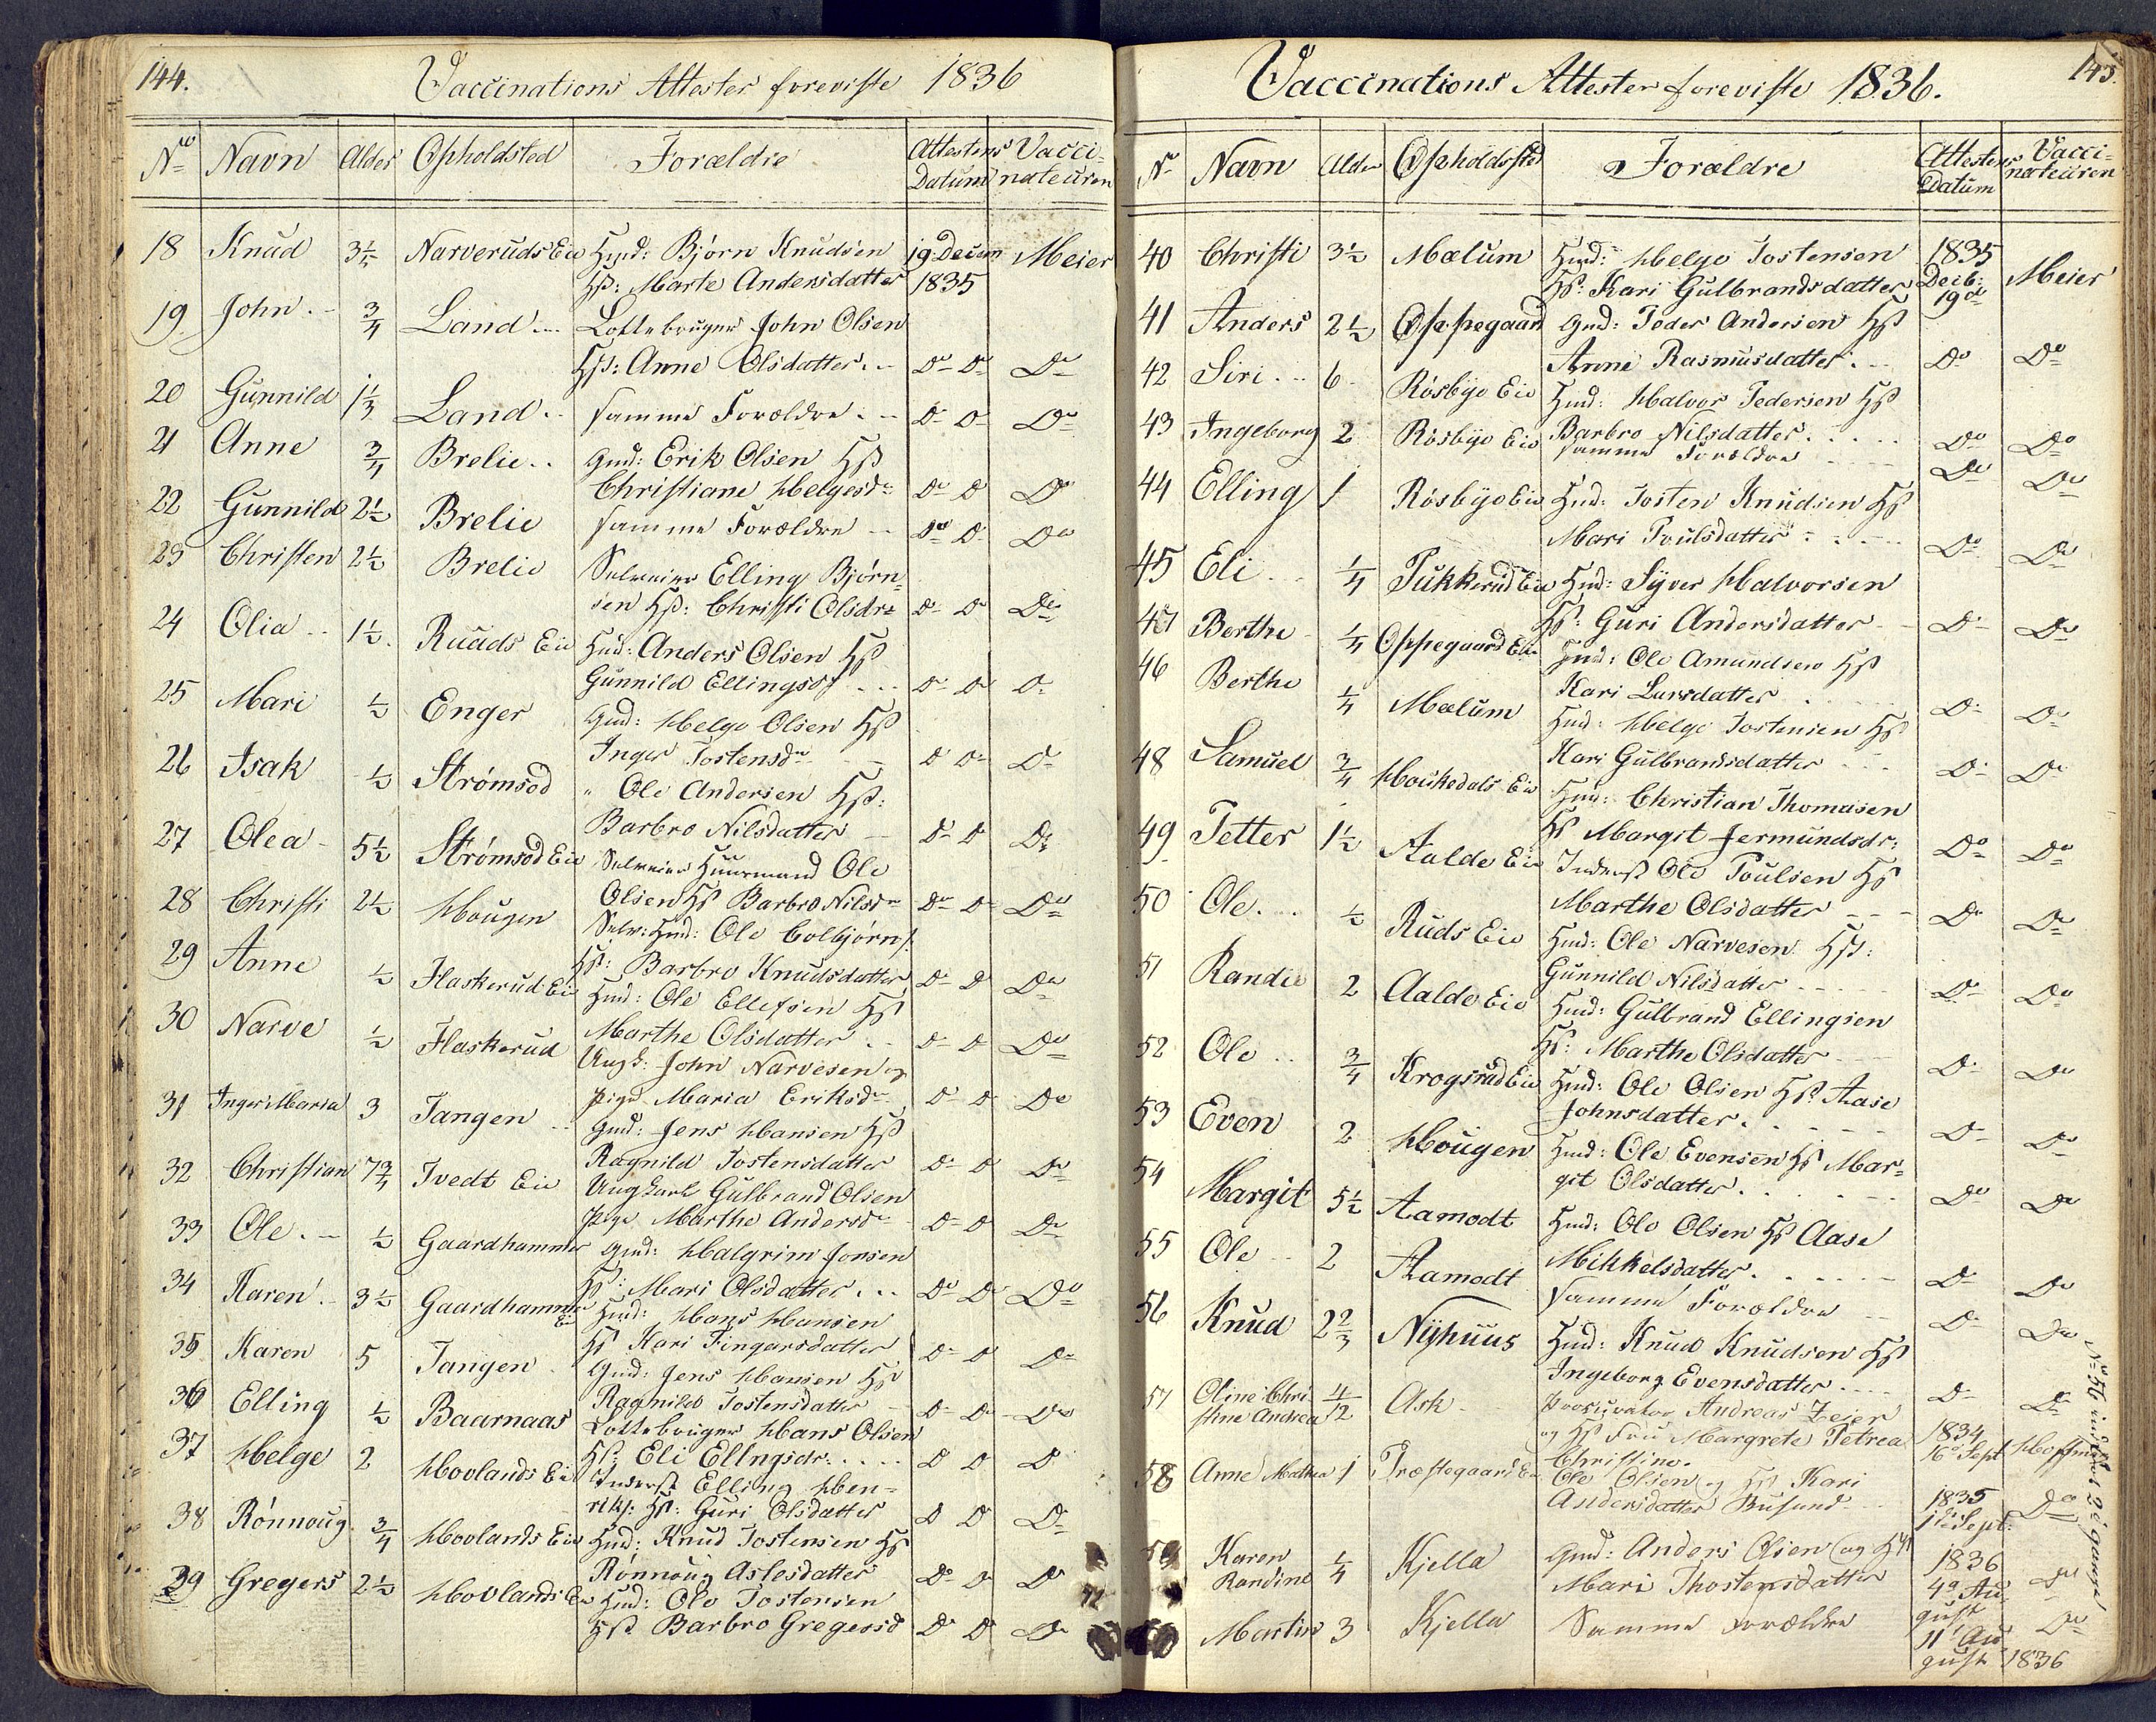 144.
Vaccinations Attester foreviste 1836
No Navn Alder Opholdsted Forældre Attestens Datum Vaccinateuren
18 Knud 3½ Narveruds Eie Hmd: Bjørn Knudsen 19 Decem Meier
Hst: Marte Andersdatter 1835
19 John 3/4 Land Lottebruger John Olsen
Hst: Anne Olsdatter Do Do Do
20 Gunnild 1 1/3 Land samme Forældre Do Do Do
21 Anne 3/4 Brelie Gmd: Erik Olsen Hst
Christiane Helgesdr Do Do Do
22 Gunnild 2½ Brelie samme Forældre Do Do Do
23 Christen 2½ Brelie Selveier Elling Bjørn-
sen Hst: Christi Olsdr Do Do Do
24 Olia 1½ Ruuds Eie Hmd: Anders Olsen Hst
Gunnild Ellingsdr Do Do Do
25 Mari ½ Enger Gmd: Helge Olsen Hst
Inger Tostensdr Do Do Do
26 Isak ½ Strømsod " Ole Andersen Hst:
Barbro Nilsdatter Do Do Do
27 Olea 5½ Strømsod Eie Selveier Huusmand Ole
Olsen Hst Barbro Nilsdr Do Do Do
28 Christi 2½ Hougen Selv: Hmd: Ole Colbjørns.
Hst: Barbro Knudsdatter Do Do Do
29 Anne ½ Flaskerud Eie Hmd: Ole Ellefsen Hst
Marthe Olsdatter Do Do Do
30 Narve ½ Flaskerud Ungk: John Narvesen og
Pige Maria Eriksdr Do Do Do
31 Inger Maria 3 Tangen Gmd: Jens Hansen Hst
Ragnild Tostensdatter Do Do Do
32 Christian 7 3/4 Tvedt Eie Ungkarl Gulbrand Olsen
Pige Marthe Andersdr Do Do Do
33 Ole ½ Gaardhammer Gmd: Halgrim Jonsen
Hst: Mari Olsdatter Do Do Do
34 Karen 3½ Gaardhammer Eie Hmd: Hans Hansen
Hst Kari Fingarsdatter Do Do Do
35 Karen 5 Tangen Gmd: Jens Hansen Hst
Ragnild Tostensdatter Do Do Do
36 Elling ½ Baarnaas Lottebruger Hans Olsen
Hst: Eli Ellngsdr Do Do Do
37 Helge 2 Hovlands Eie Inderst Elling Hen-
riks: Hst: Guri Olsdatter Do Do Do
38 Rønnoug 3/4 Hovlands Eie Hmd: Knud Tostensen Hst
Rønnoug Aslesdatter Do Do Do
39 Gregers 2½ Hovlands Eie Hmd: Ole Tostensen
Hst Barbro Gregersd Do Do Do
145.
Vaccinations Attester foreviste 1836.
No Navn Alder Opholdssted Forældre Attestens Datum Vaccinateuren
40 Christi 3½ Mælum Hmd: Helge Tostensen 1835
Hst: Kari Gulbrandsdatter Decb: 19de Meier
41 Anders 2½ Oppegaard Gmd: Peder Andersen Hst
Anne Rasmusdatter Do Do
42 Siri 6 Røsbye Eie Hmd: Halvor Pedersen Hst
Barbro Nilsdatter Do Do
43 Ingeborg 2 Røsbye Eie samme Forældre Do Do
44 Elling 1 Røsbye Eie Hmd: Tosten Knudsen Hst
Mari Poulsdatter Do Do
45 Eli 1/4 Pukkerud Eie Hmd: Syver Halvorsen
Hst: Guri Andersdatter Do Do
47 Berthe 1/4 Oppegaard Eie Hmd: Ole Amundsen Hst
Kari Larsdatter Do Do
46 Berthe 1/4 Mælum Hmd: Helge Tostensen Hst
Kari Gulbrandsdatter Do Do
48 Samuel 3/4 Houkedals Eie Hmd: Christian Thomasen
Hst Margit Jermundsdr: Do Do
49 Petter 1½ Aalde Eie Inderst Ole Poulsen Hst
Marthe Olsdatter Do Do
50 Ole ½ Ruds Eie Hmd: Ole Narvesen Hst:
Gunnild Nilsdatter Do Do
51 Randie 2 Aalde Eie Hmd: Gulbrand Ellingsen
Hst: Marthe Olsdatter Do Do
52 Ole 3/4 Krogsrud Eie Hmd: Ole Olsen Hst Aase
Johnsdatter Do Do
53 Even 2 Hougen Hmd: Ole Evensen Hst Mar-
git Olsdatter Do Do
54 Margit 5½ Aamodt Hmd: Ole Olsen Hst Aase
Mikkelsdatter Do Do
55 Ole 2 Aamodt samme Forældre Do Do
56 Knud 2 2/3 Nyhuus Hmd: Knud Knudsen Hst
Ingeborg Evensdatter Do Do
57 Oline Chri- 4/12 Ask Procurator Andreas Zeier
stine Andrea og Hst Fru Margrete Petrea 1834
Christine 16 Sept Hoffman
58 Anne Mathea 1 Præstegaards Eie Ole Olsen og Hst Kari
Andersdatter Busund 1835 Do
1 Sept:
59 Karen 1/4 Kjella Gmd: Anders Olsen og Hst 1836
Randine Mari Thostensdatter 4de August Do
Martin 3 Kjella Samme Forældre Do
11 August 1836